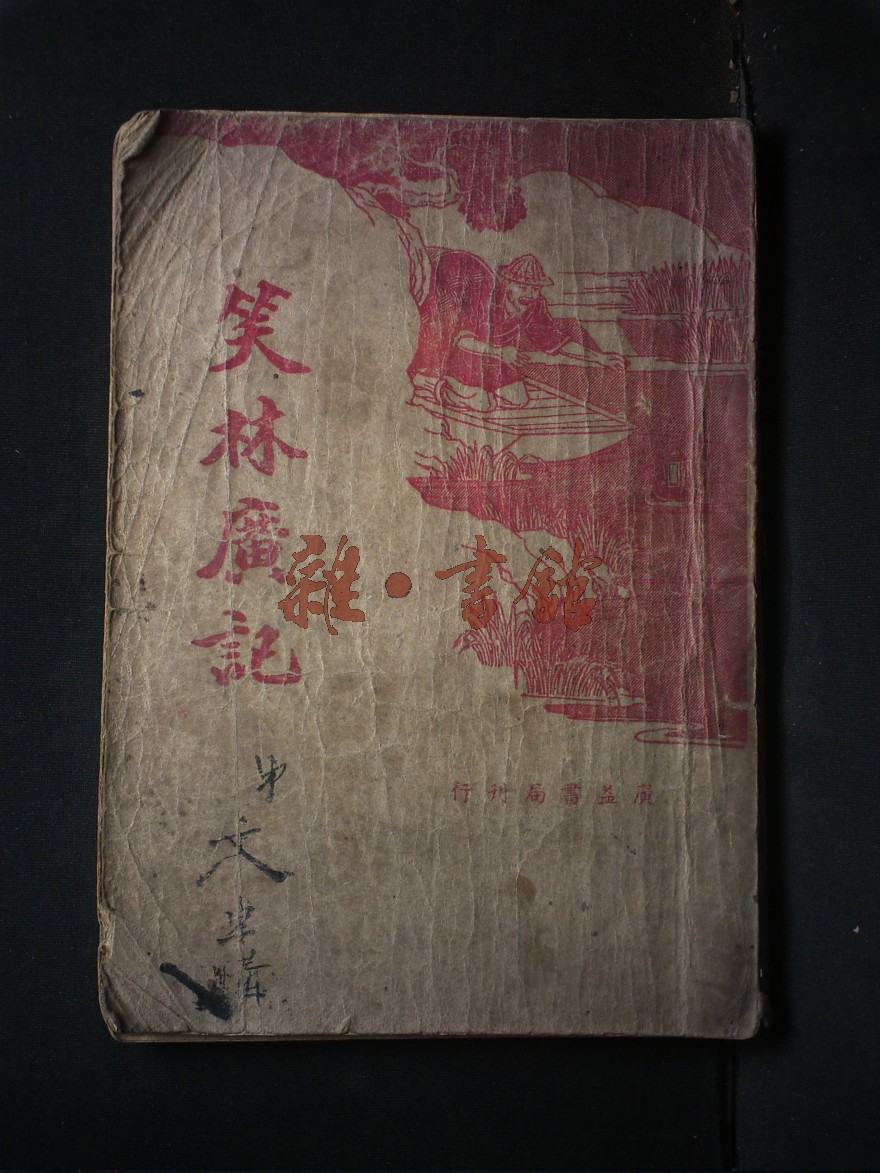 笑林廣記
廣益書局刊行
雜·書館
文
購